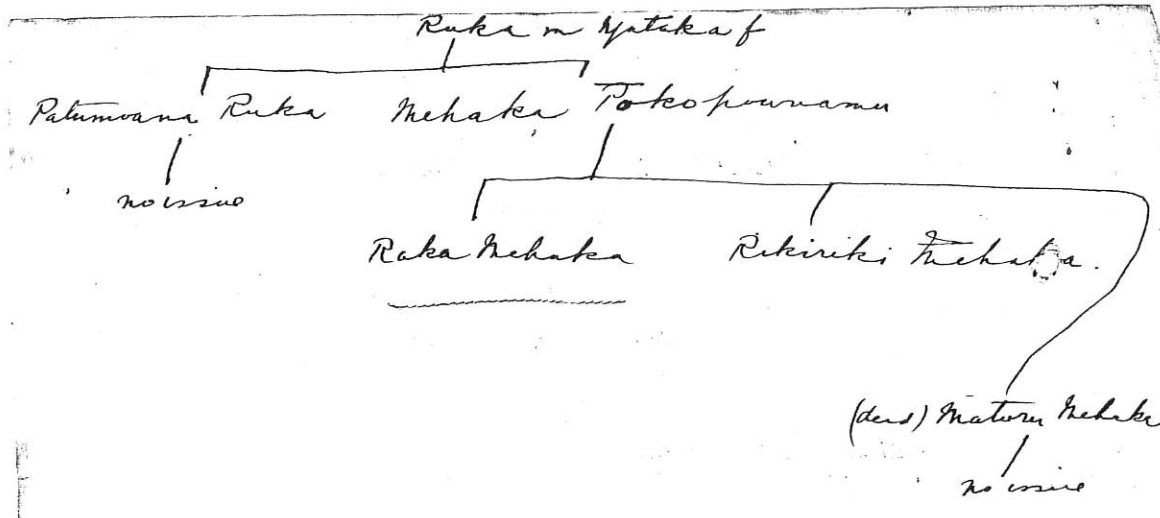 Ruka m Mataka f
Patumoana Ruka Mehaka Tokopounamu
no issue
Raka Mehaka Rikiriki Mehaka.
(dead) Matoru Mehaka
no issue